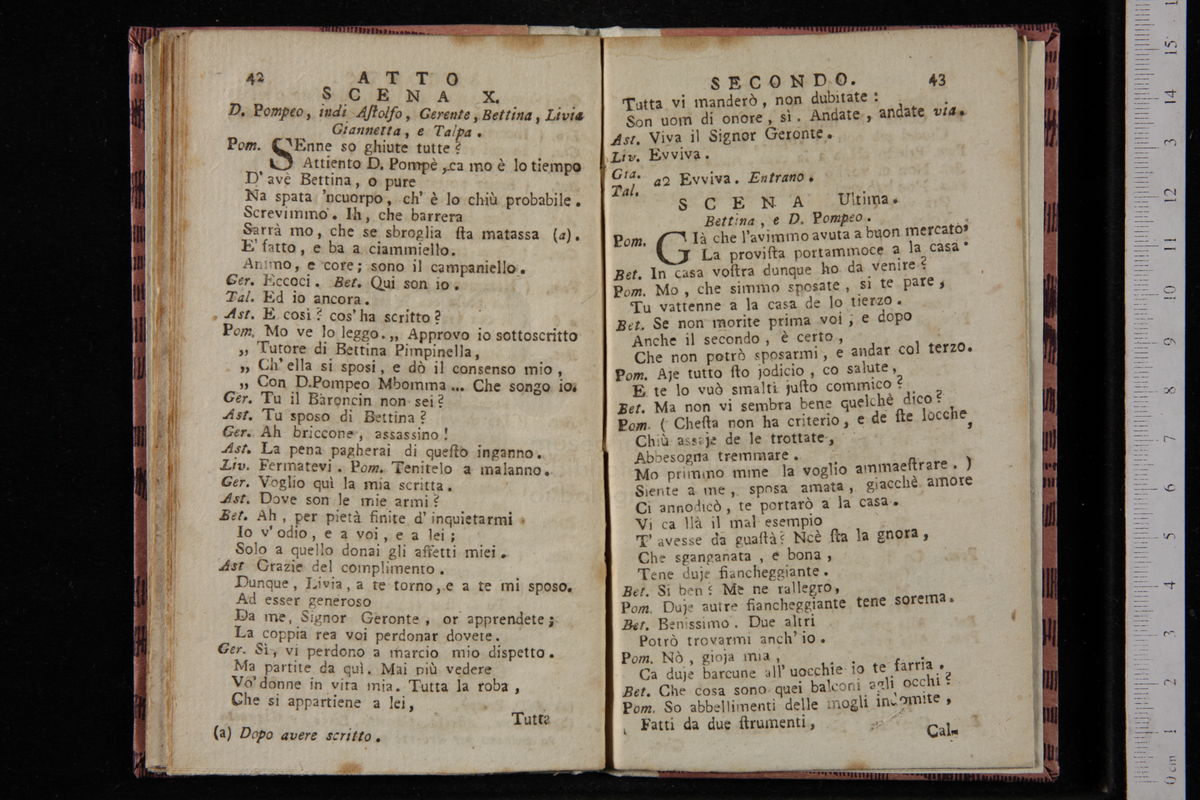 42 ATTO
SCENA X.
D. Pompeo, indi Aſtolfo, Gerente, Bettina, Livia
Giannetta, e Talpa.
Pom. SEnne so ghiute tutte?
Attiento D. Pompè, ca mo è lo tiempo
D' avè Bettina, o pure
Na spata 'ncuorpo, ch' è lo chiù probabile.
Screvimmo. Ih, che barrera
Sarrà mo, che se sbroglia ſta matassa (a).
E' fatto, e ba a ciammiello.
Animo, e core; sono il campaniello.
Ger. Eccoci. Bet. Qui son io.
Tal. Ed io ancora.
Ast. E così? cos' ha scritto?
Pom. Mo ve lo leggo. „ Approvo io sottoscritto
„ Tutore di Bettina Pimpinella,
„ Ch' ella si sposi, e dò il consenso mio,
„ Con D. Pompeo Mbomma... Che songo io.
Ger. Tu il Baroncin non sei?
Ast. Tu sposo di Bettina?
Ger. Ah briccone, assassino!
Ast. La pena pagherai di queſto inganno.
Liv. Fermatevi. Pom. Tenitelo a malanno.
Ger. Voglio quì la mia scritta.
Ast. Dove son le mie armi?
Bet. Ah, per pietà finite d' inquietarmi
Io v' odio, e a voi, e a lei;
Solo a quello donai gli affetti miei.
Ast Grazie del complimento.
Dunque, Livia, a te torno, e a te mi sposo.
Ad esser generoso
Da me, Signor Geronte, or apprendete;
La coppia rea voi perdonar dovete.
Ger. Sì, vi perdono a marcio mio dispetto.
Ma partite da quì. Mai più vedere
Vo' donne in vita mia. Tutta la roba,
Che si appartiene a lei,
Tutta
(a) Dopo avere scritto.
SECONDO. 43
Tutta vi manderò, non dubitate:
Son uom di onore, sì. Andate, andate via.
Ast. Viva il Signor Geronte.
Liv. Evviva.
Gia.
Tal. a2 Evviva. Entrano.
SCENA Ultima.
Bettina, e D. Pompeo.
Pom. GIà che l'avimmo avuta a buon mercato,
La proviſta portammoce a la casa.
Bet. In casa voſtra dunque ho da venire?
Pom. Mo, che simmo sposate, si te pare,
Tu vattenne a la casa de lo tierzo.
Bet. Se non morite prima voi, e dopo
Anche il secondo, è certo,
Che non potrò sposarmi, e andar col terzo.
Pom. Aje tutto ſto jodicio, co salute,
E te lo vuò smaltì juſto commico?
Bet. Ma non vi sembra bene quelchè dico?
Pom. ( Cheſta non ha criterio, e de ſte locche,
Chiù assaje de le trottate,
Abbesogna tremmare.
Mo primmo mme la voglio ammaeſtrare. )
Siente a me, sposa amata, giacchè amore
Ci annodicò, te portarò a la casa.
Vi ca llà il mal esempio
T' avesse da guaſtà? Ncè ſta la gnora,
Che sganganata, e bona,
Tene duje fiancheggiante.
Bet. Sì ben? Me ne rallegro,
Pom. Duje autre fiancheggiante tene sorema.
Bet. Benissimo. Due altri
Potrò trovarmi anch' io.
Pom. Nò, gioja mia,
Ca duje barcune all' uocchie io te farria.
Bet. Che cosa sono quei balconi agli occhi?
Pom. So abbellimenti delle mogli indomite,
Fatti da due ſtrumenti,
Cal-
15
14
13
12
11
10
9
8
7
6
5
4
3
2
1
0 cm